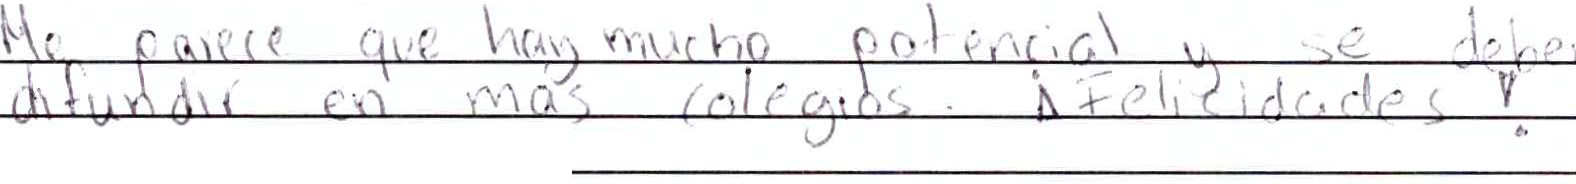 Me parece que hay mucho potencial y se debe
difundir en más colegios. ¡Felicidades!